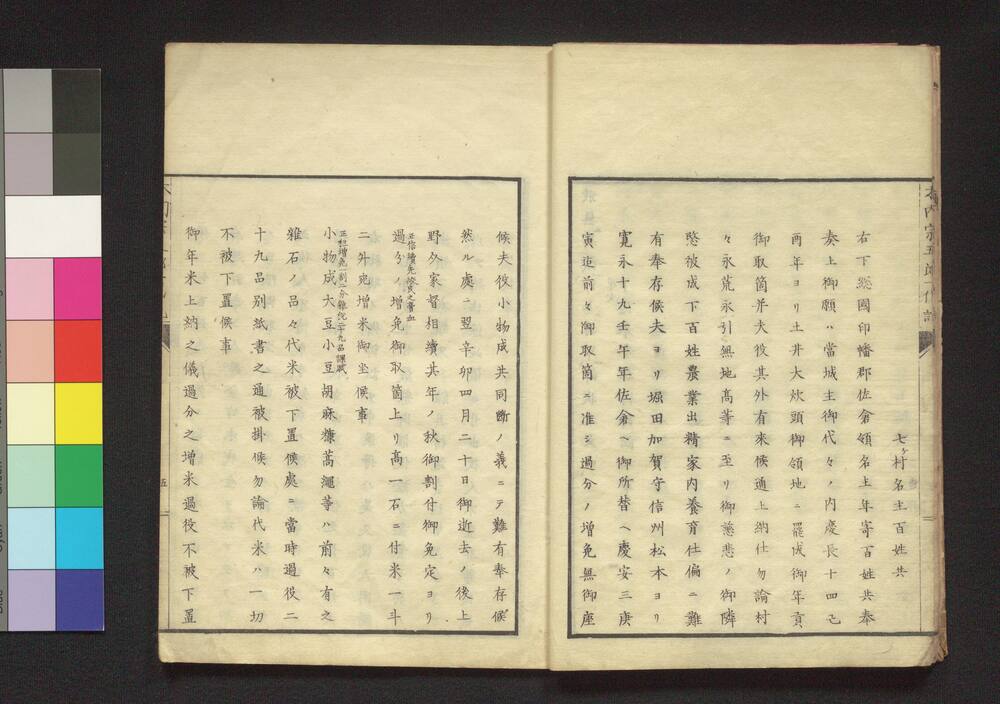 七ヶ村名主百姓共
右下総國印幡郡佐倉領名主年寄百姓共奉
奏上御願ハ當城主御代々ノ内慶長十四己
酉年ヨリ土井大炊頭御領地ニ罷成御年貢
御取箇并夫役其外有來候通上納仕勿論村
々永荒永引無地高等ニ至リ御慈悲ノ御隣
愍被成下百姓農業出精家内養育仕偏ニ難
有奉存候夫ヨリ堀田加賀守信州松本ヨリ
寛永十九壬午年佐倉ヘ御所替ヘ慶安三庚
寅迄前々御取箇ニ准シ過分ノ増免無御座
候夫役小物成共同断ノ義ニテ難有奉存候
然ル處ニ翌辛卯四月二十日御逝去ノ後上
野介家督相續其年ノ秋御割付御免定ヨリ
正信増免惨民之膏血
過分ノ増免御取箇上リ高一石ニ付米一斗
二升宛増米御坐候事
正租増免一割二分雜税二十九品課賦
小物成大豆小豆胡麻糠藁縄等ハ前々有之
雜石ノ品々代米被下置候處ニ當時過役二
十九品別紙書之通被掛候勿論代米ハ一切
不被下置候事
御年米上納之儀過分之増米過役不被下置
五